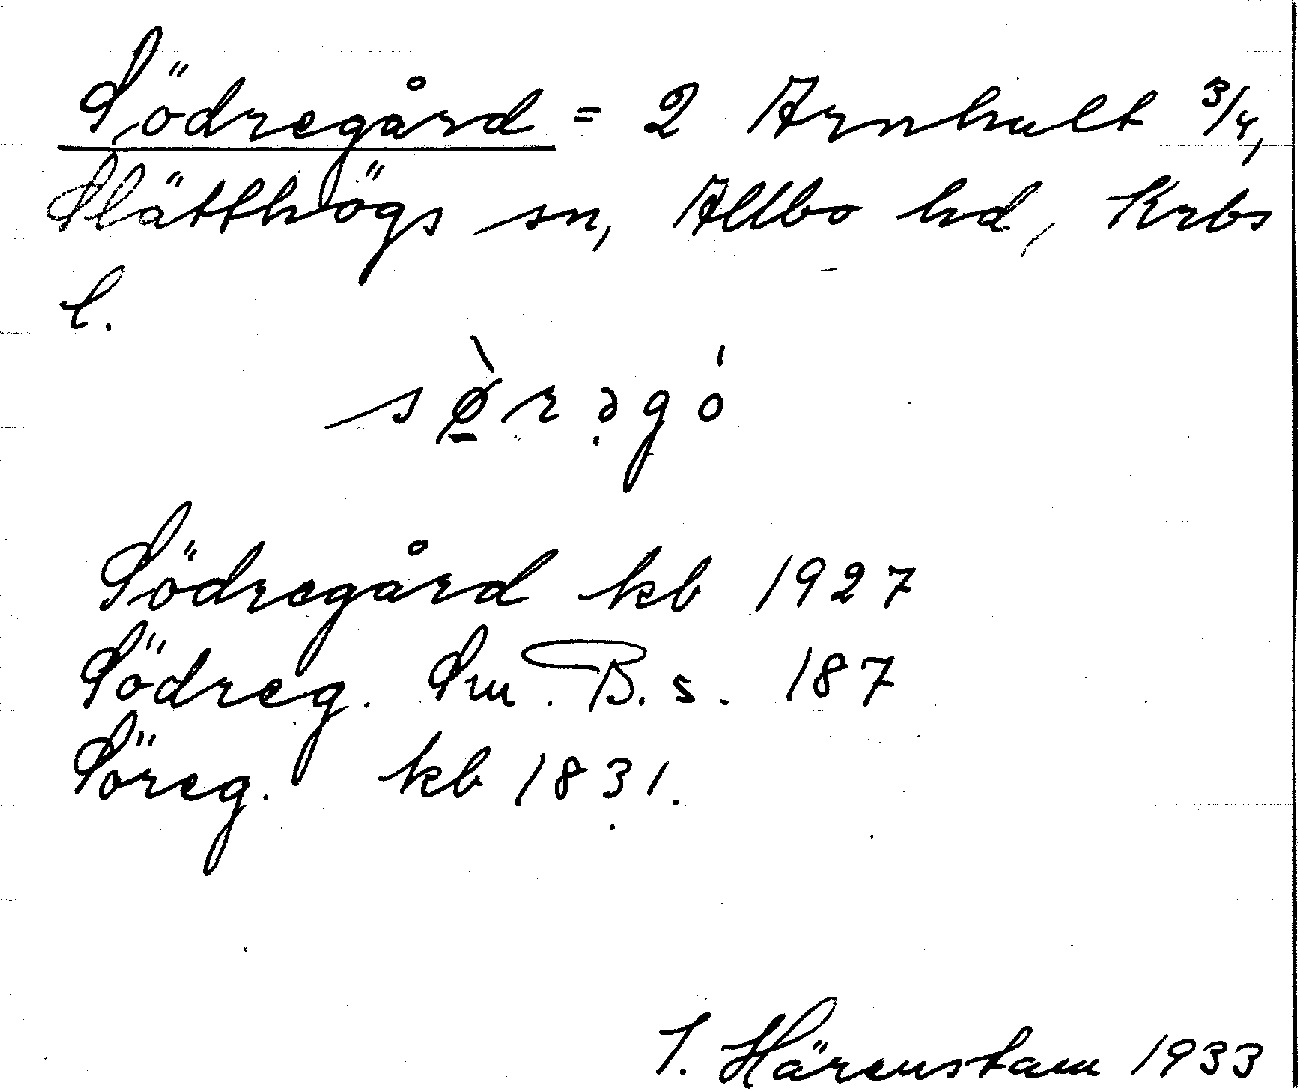 Södregård = 2 Arnhult 3/4,
Slätthögs sn, Allbo hd, Krbs
l.
sø̠̀rə̣gó
Södregård kb 1927
Södreg. Sm. B. s. 187
Söreg. kb 1831.
I. Härenstam 1933